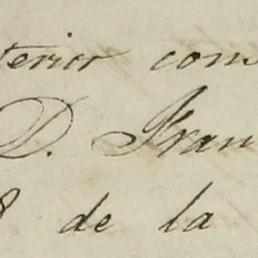 terior com
D. Fran
8 de la